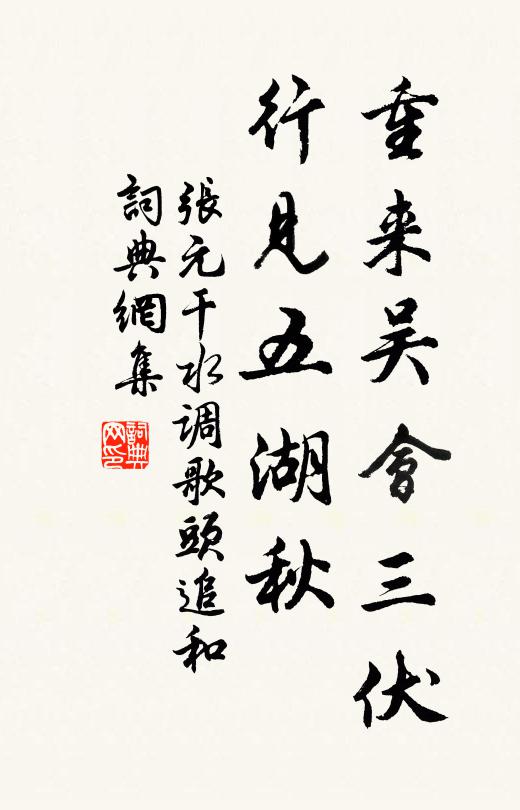 重来吴會三伏
行見五湖秋
張元干水调歌頭追和
詞典網集
詞典網印